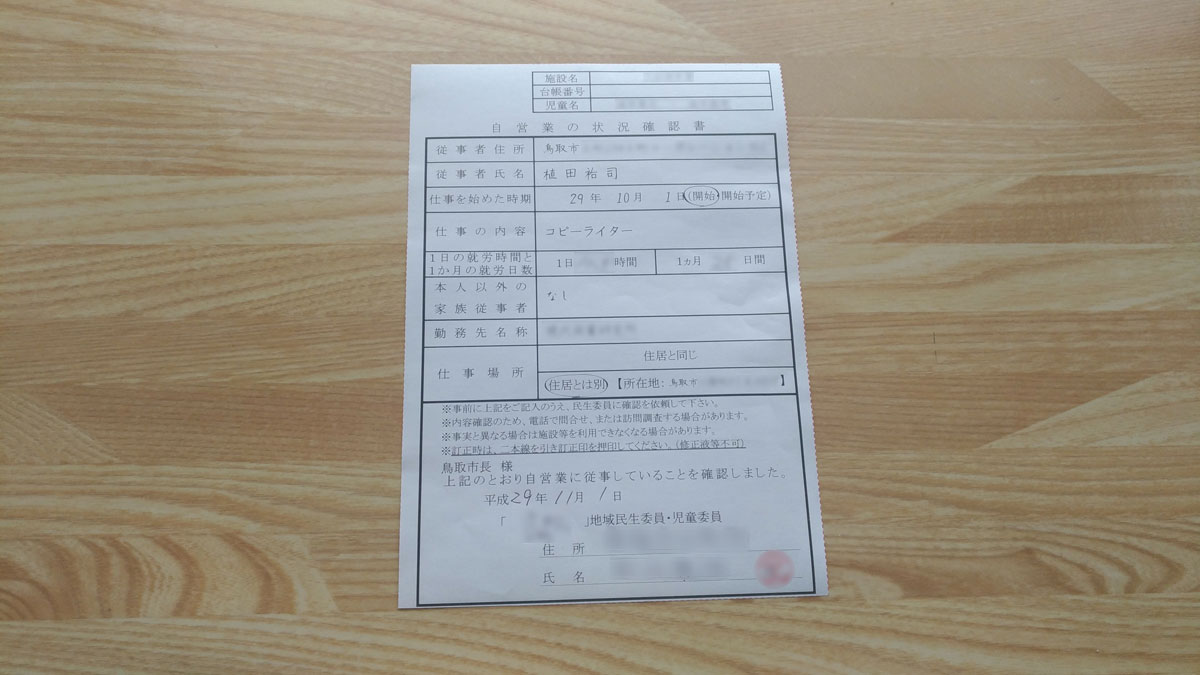 施設名
台帳番号
児童名
自営業の状況確認書
従事者住所 鳥取市
従事者氏名 植田祐司
仕事を始めた時期 29年 10月 1日(開始・開始予定)
仕事の内容 コピーライター
1日の就労時間と
1か月の就労日数 1日 時間 1ヵ月 日間
本人以外の
家族従事者 なし
勤務先名称
仕事場所 住居と同じ
(住居とは別)【所在地:鳥取市 】
※事前に上記をご記入のうえ、民生委員に確認を依頼して下さい。
※内容確認のため、電話で問合せ、または訪問調査する場合があります。
※事実と異なる場合は施設等を利用できなくなる場合があります。
※訂正時は、二本線を引き訂正印を押印してください。(修正液等不可)
鳥取市長 様
上記のとおり自営業に従事していることを確認しました。
平成29年 11月 1日
「 」地域民生委員・児童委員
住 所
氏 名